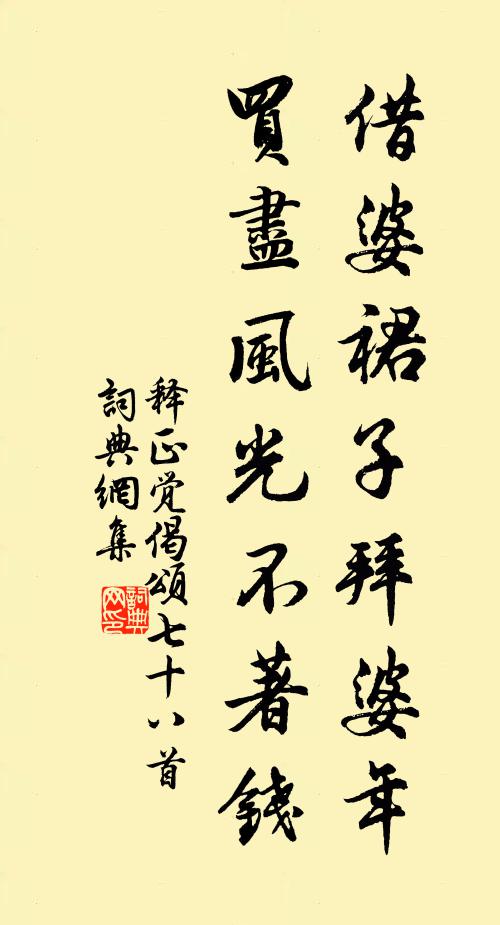 借婆裙子拜婆年
買盡風光不著錢
释正覚偈頌七十八首
詞典網集
詞典网印